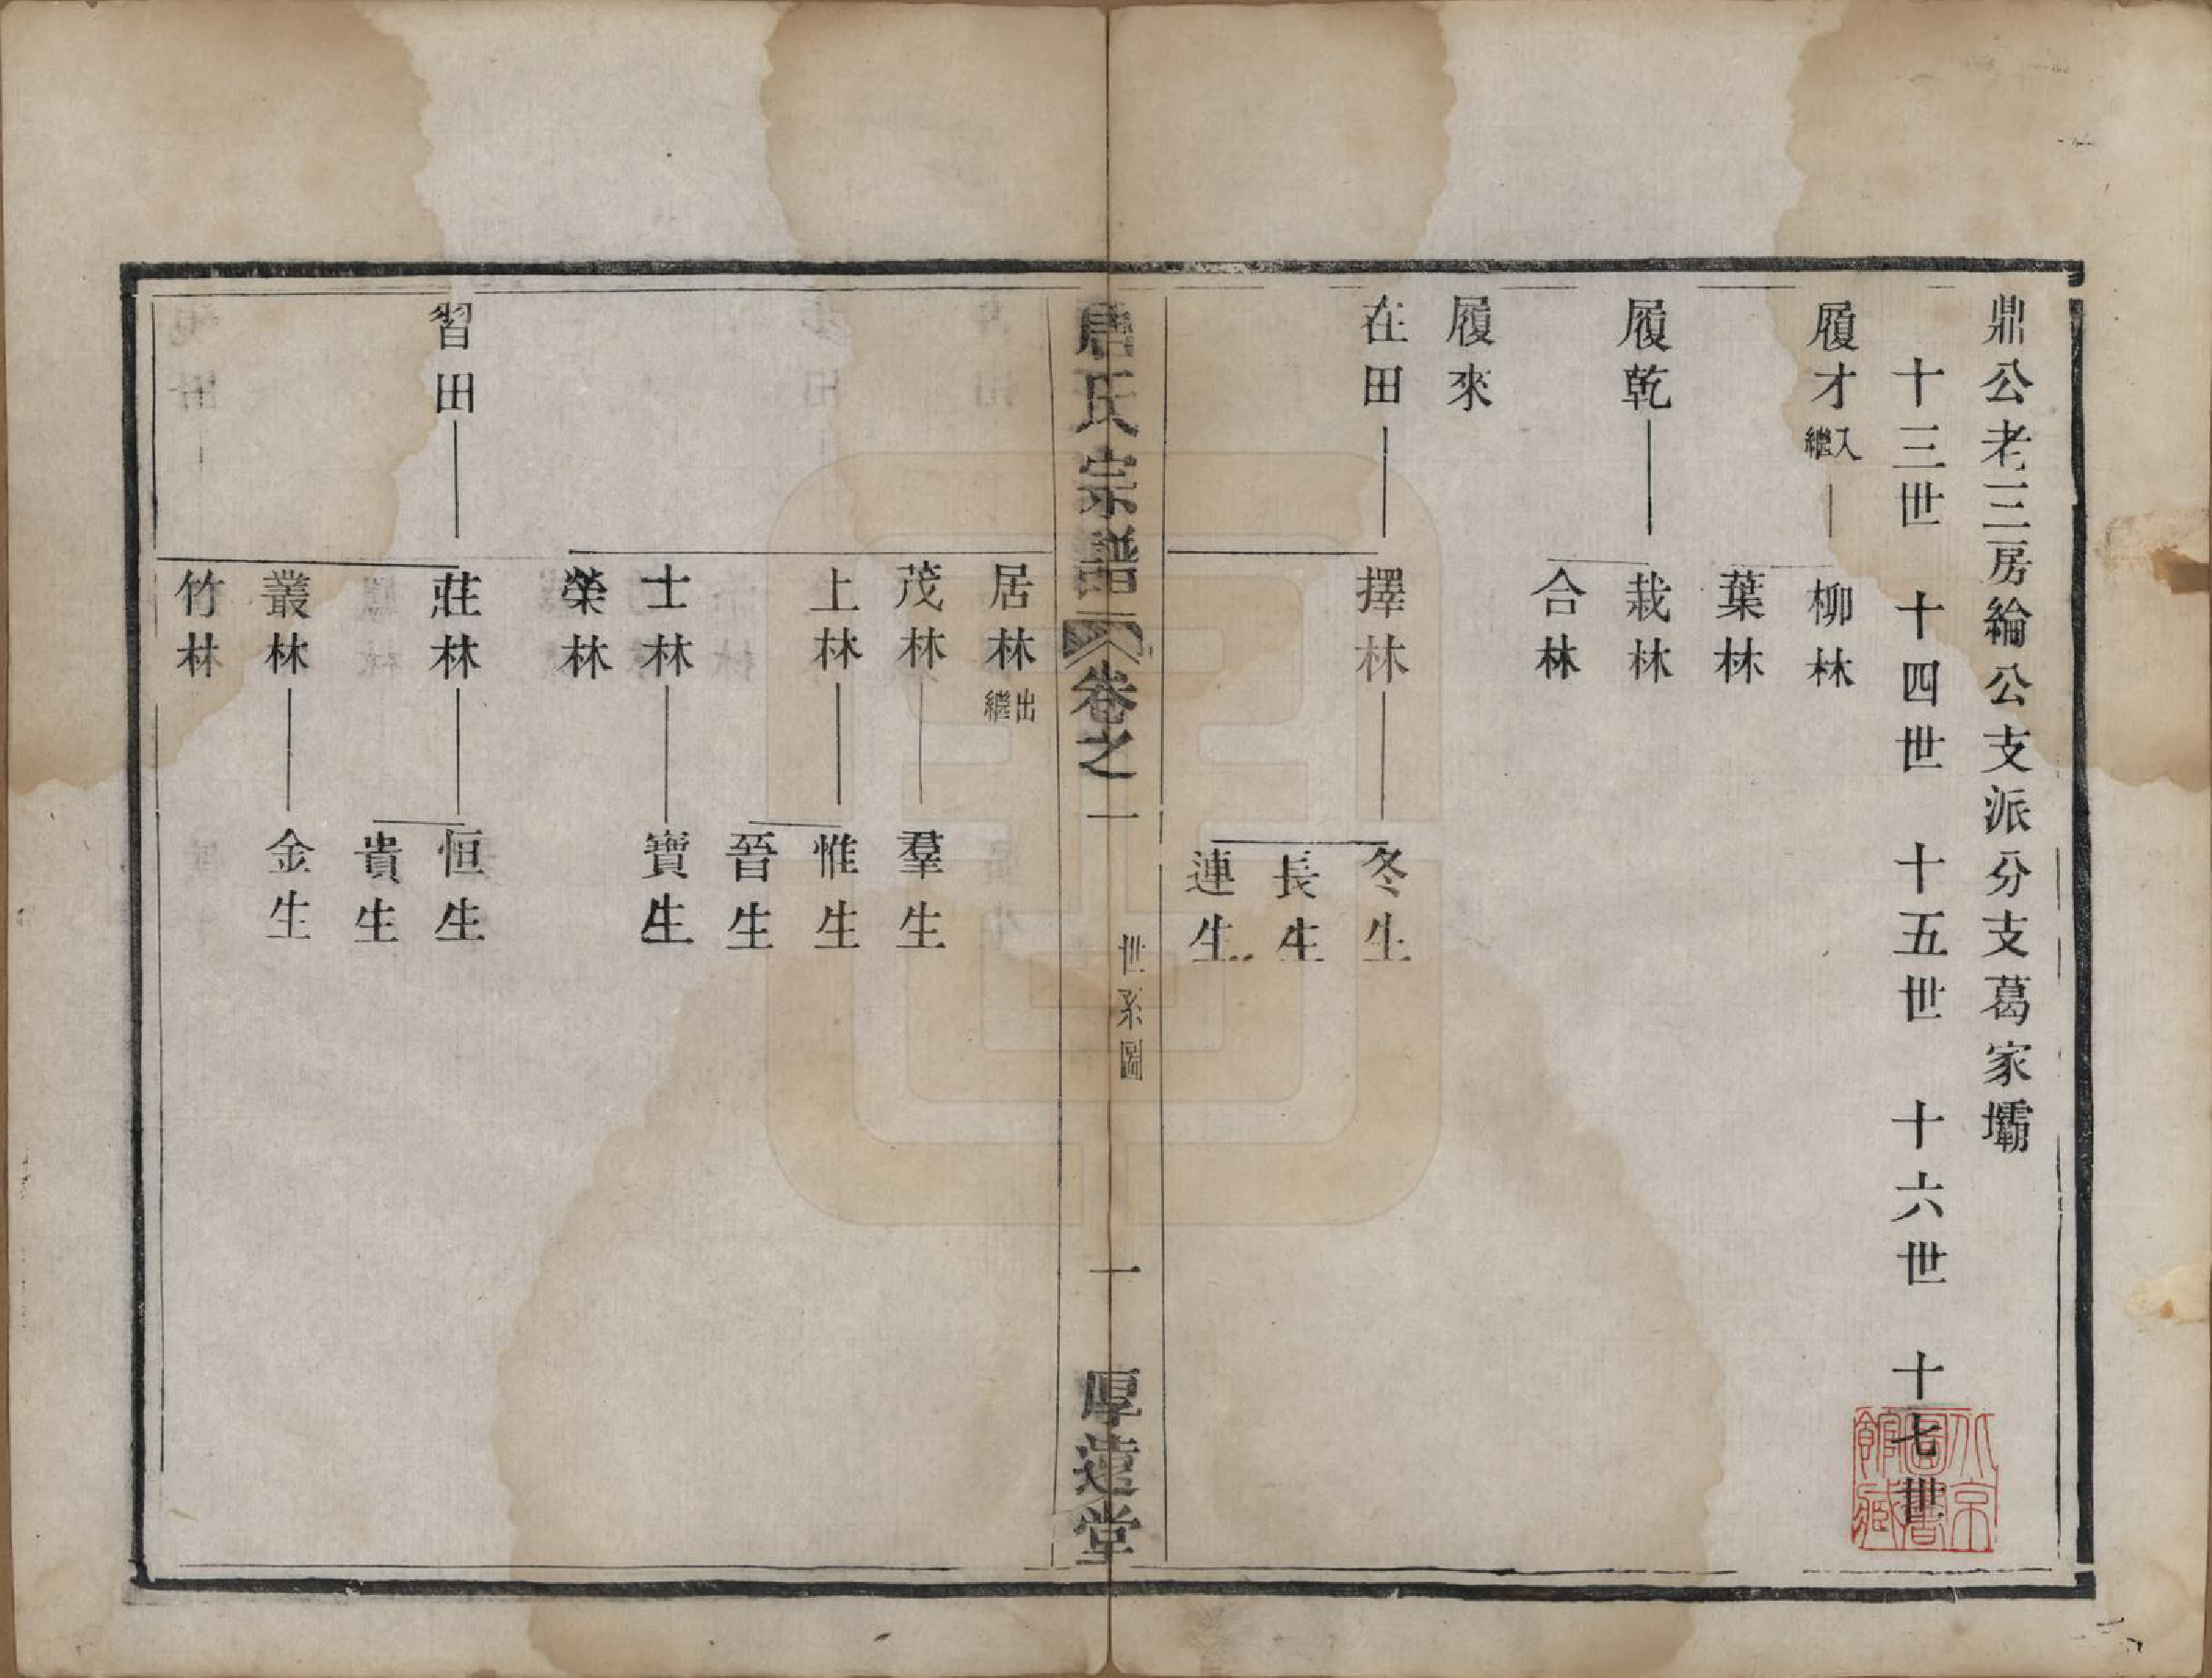 鼎公老三房綸公支派分支葛家壩
十三世 十四世 十五世 十六世 十七世
履才 入繼 柳林
葉林
履乾 栽林
合林
履來
在田 擇林 冬生
長生
連生
唐氏宗譜 卷之一 世系圖 一 厚遠堂
居林 出繼
茂林 羣生
上林 惟生
晉生
士林 寶生
榮林
習田 莊林 恒生
貴生
叢林 金生
竹林
北京圖書館藏